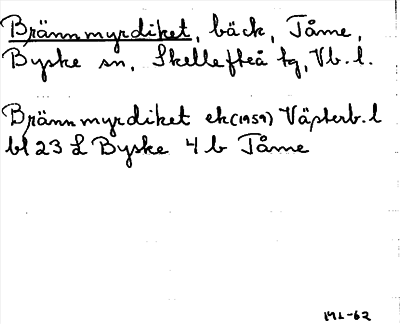 Brännmyrdiket, bäck, Tåme,
Byske sn, Skellefteå tg, Vb. l.
Brännmyrdiket ek (1959) Västerb. l
bl 23 L Byske 4 b Tåme
ML-62